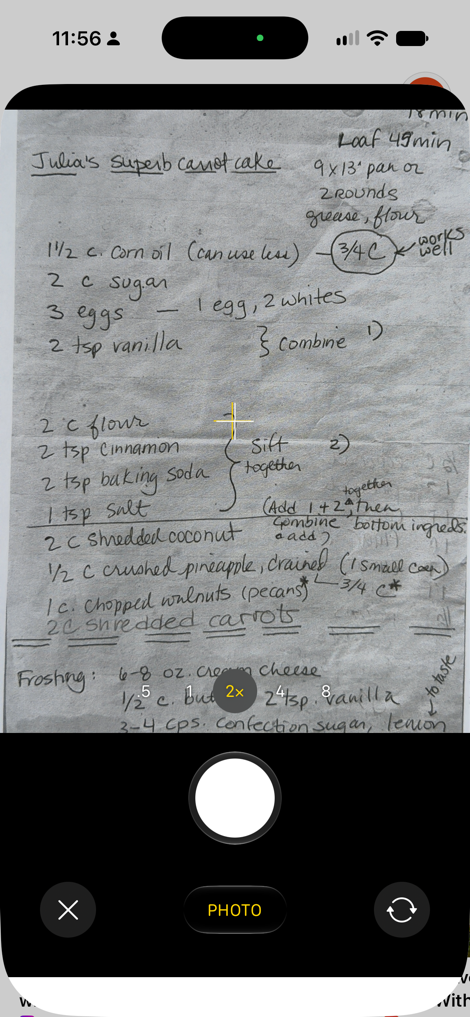 11:56
18 min
Loaf 45min
Julia's superb carrot cake
9x13" pan or
2 ROUNDS
grease, flour
1 1/2 c. corn oil (can use less) — 3/4 C ← works well
2 c sugar
3 eggs — 1 egg, 2 whites
2 tsp vanilla } combine 1)
2 c flour
2 tsp cinnamon
2 tsp baking soda
1 tsp salt
} Sift together 2)
(Add 1 + 2 together, then
combine bottom ingreds.
& add)
2 c shredded coconut
1/2 c crushed pineapple, drained (1 small can)
3/4 c*
1 c. chopped walnuts (pecans)*
2 c shredded carrots
Frosting: 6-8 oz. cream cheese
1/2 c. 2 tsp. vanilla
3-4 cps. confection sugar, lemon
→ to taste
.5 1 2× 4 8
PHOTO